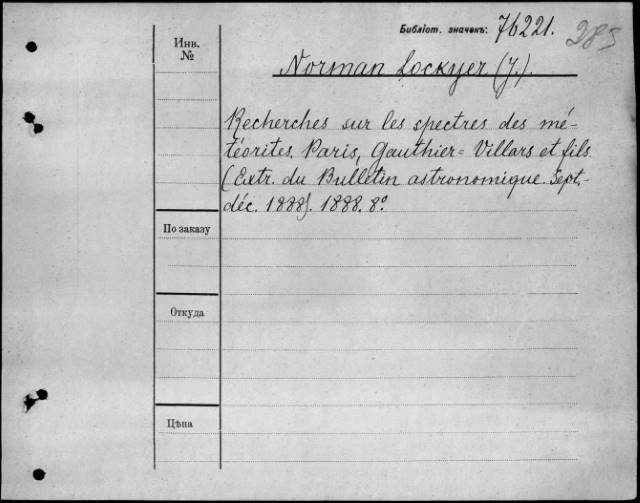 Библіот. значекъ: 76221. 285
Инв. №
Norman Lockyer (J.).
Recherches sur les spectres des mé-
téorites. Paris, Gauthier=Villars et fils.
(Extr. du Bulletin astronomique. Sept.-
déc. 1888). 1888. 8º
По заказу
Откуда
Цѣна